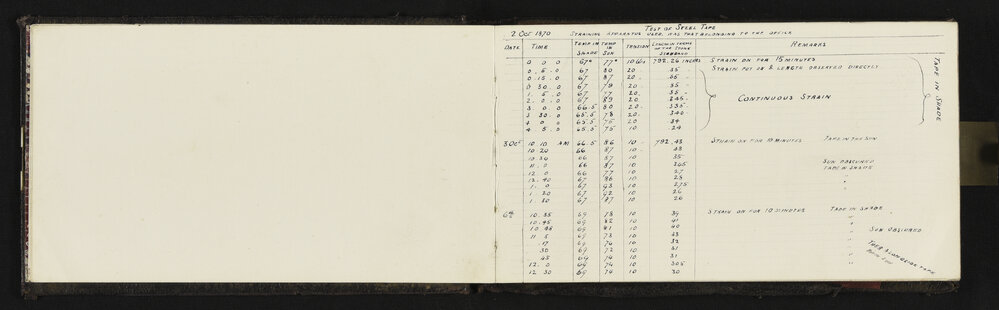 Test of Steel Tape
2 Oct 1890 Straining apparatus used was that belonging to the office
Date Time Temp in Shade Temp in Sun Tension Length in terms of the Stone Standard Remarks
0 0 0 67° 77° 10 lbs 792.26 inches Strain on for 15 minutes
0 5 0 67 80 20 35 Strain put on & length observed directly
0 15 0 67 87 20 35
0 30 0 67 79 20 35
1 5 0 67 77 20 35
2 0 0 67 89 20 345 Continuous Strain
3 0 0 66.5 80 20 335
3 30 0 65.5 78 20 340
4 0 0 65.5 75 20 34
4 5 0 65.5 75 10 24
Tape in Shade
3 Oct 10 10 AM 66.5 86 10 792.43 Strain on for 10 minutes Tape in the Sun
10 20 66 87 10
10 30 66 87 10 35
11 0 66 87 10 Sun obscured
12 0 66 77 10 27 Tape in shade
12 40 67 86 10 28
1 0 67 93 10 275
1 20 67 92 10 26
1 30 67 87 10 26
6th 10 35 69 78 10 39 Strain on for 10 minutes Tape in shade
10 45 69 82 10 41
10 55 69 81 10 40
11 5 69 73 10 33 Sun obscured
17 69 74 10 32
30 69 72 10 31
45 69 74 10 31
12 0 69 74 10 305
12 30 69 74 10 30